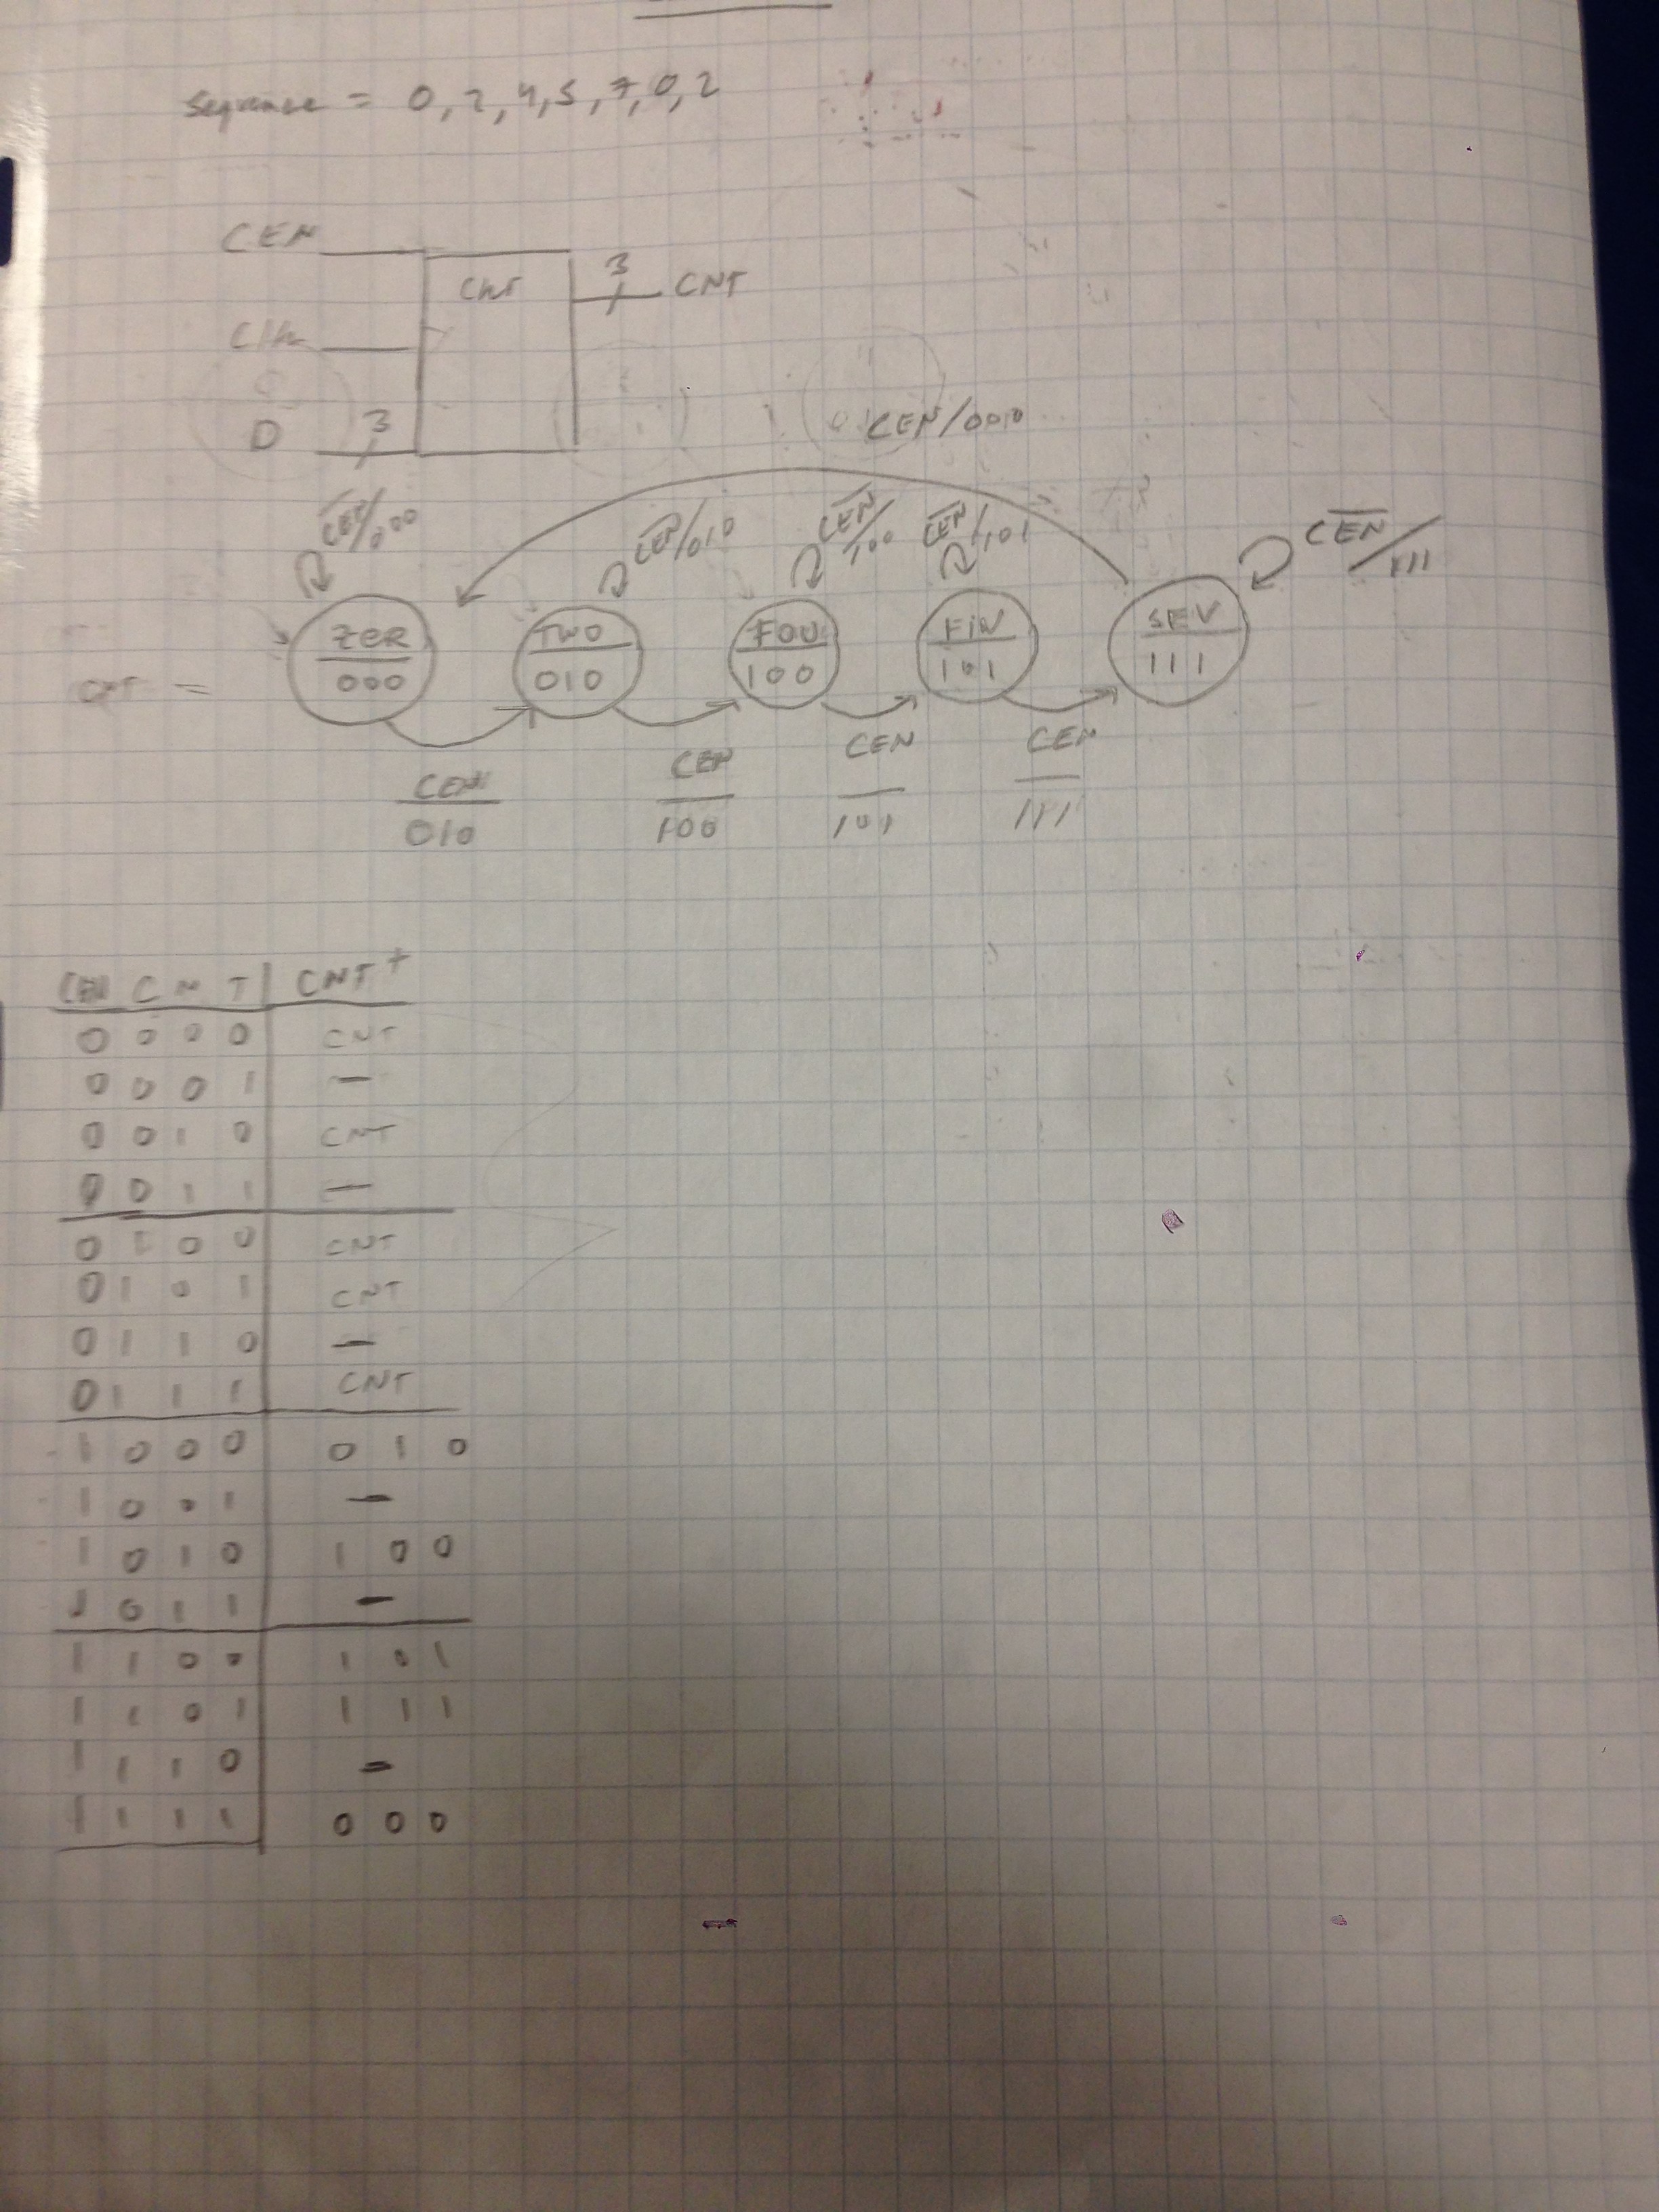 Sequence = 0, 2, 4, 5, 7, 0, 2
CEN
Cnt
3
CNT
Clk
D
3
CEN/0010
CEN/000
CEN/010
CEN/100
CEN/101
CEN/111
CNT =
ZER
000
TWO
010
FOU
100
FIV
101
SEV
111
CEN
010
CEN
100
CEN
101
CEN
111
CEN C N T | CNT+
0 0 0 0 | CNT
0 0 0 1 | —
0 0 1 0 | CNT
0 0 1 1 | —
0 1 0 0 | CNT
0 1 0 1 | CNT
0 1 1 0 | —
0 1 1 1 | CNT
1 0 0 0 | 0 1 0
1 0 0 1 | —
1 0 1 0 | 1 0 0
1 0 1 1 | —
1 1 0 0 | 1 0 1
1 1 0 1 | 1 1 1
1 1 1 0 | —
1 1 1 1 | 0 0 0